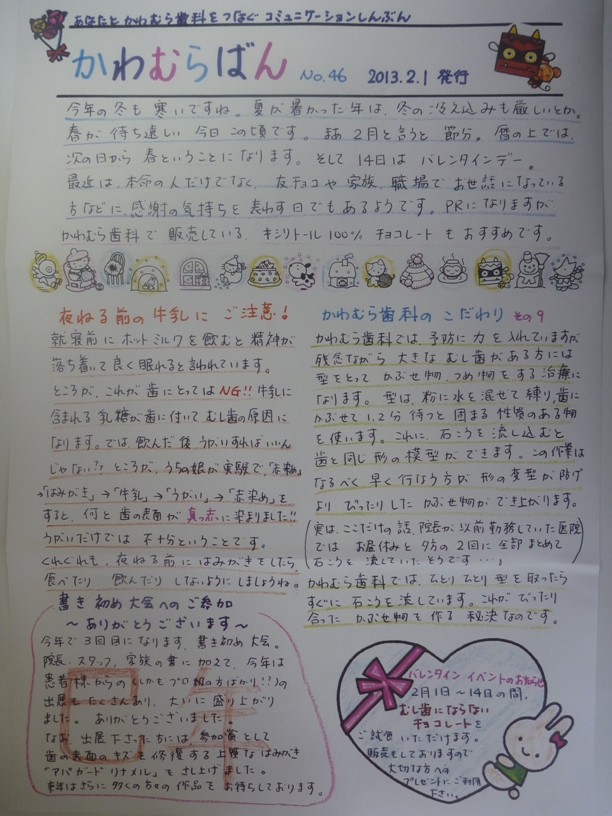 あなたと かわむら歯科を つなぐ コミュニケーションしんぶん
かわむらばん No.46 2013.2.1 発行
今年の冬も 寒いですね。夏が暑かった年は、冬の冷え込みも厳しいとか。
春が 待ち遠しい 今日 この頃です。まあ 2月と言うと 節分。暦の上では、
次の日から 春ということに なります。そして 14日は バレンタインデー。
最近は、本命の人だけでなく、友チョコや 家族、職場で お世話になっている
方などに、感謝の気持ちを 表わす日でも あるようです。PRになりますが
かわむら歯科で 販売している、キシリトール100% チョコレート も おすすめです。
夜ねる前の 牛乳に ご注意!
就寝前に ホットミルクを飲むと 精神が
落ち着いて 良く眠れると 言われています。
ところが、これが 歯にとっては NG!! 牛乳に
含まれる 乳糖が歯に付いて むし歯の原因に
なります。では、飲んだ後 うがいすれば いいん
じゃない?? ところが、うちの娘が実験で、「赤染め」
→「はみがき」→「牛乳」→「うがい」→「赤染め」を
すると、何と 歯の表面が 真っ赤に 染まりました!!
うがいだけでは 不十分ということです。
くれぐれも、夜ねる前に はみがきをしたら、
食べたり 飲んだり しないように しましょうね。
かわむら歯科の こだわり その9
かわむら歯科では、予防に 力を 入れていますが
残念ながら 大きな むし歯がある方には
型をとって かぶせ物、つめ物をする治療に
なります。型は、粉に水を混ぜて練り、歯に
かぶせて 1、2分 待つと 固まる 性質のある物
を使います。これに、石こうを 流し込むと
歯と同じ形の模型が できます。この作業は
なるべく 早く 行なう方が 形の変型が防げ
より ぴったりした かぶせ物が でき上がります。
(実は、ここだけの話、院長が以前勤務していた医院
では お昼休みと 夕方の 2回に 全部 まとめて
石こうを 流していたそうです・・・)
かわむら歯科では、ひとり ひとり 型を取ったら
すぐに 石こうを 流しています。これが ぴったり
合った かぶせ物を 作る 秘訣なのです。
書き初め大会への ご参加
～ ありがとう ございます ～
今年で 3回目になります、書き初め大会。
院長、スタッフ、家族の書に 加えて、今年は
患者様からの(しかも プロ級の方ばかり!!)の
出展も たくさんあり、大いに 盛り上がり
ました。ありがとうございました。
なお、出展下さった方には、参加賞として
歯の表面のキズを修復する上質なはみがき
「アパガード リナメル」を さし上げました。
来年は さらに 多くの方々の 作品を お待ちしております。
巳年
バレンタイン イベントのお知らせ
2月1日～14日の間、
むし歯にならない
チョコレートを
ご試食 いただけます。
販売もしておりますので
大切な方への
プレゼントにご利用
下さい。